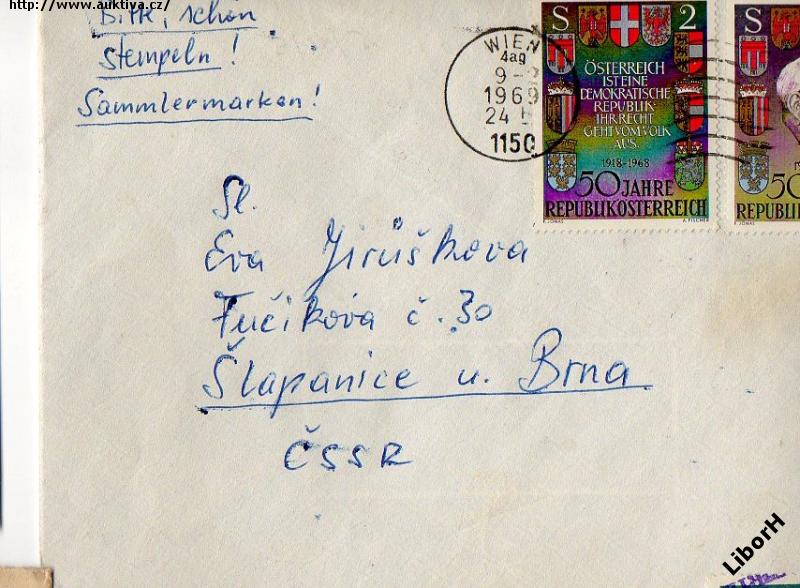 http://www.auktiva.cz/
Bitte, schön
stempeln!
Sammlermarken!
WIEN
4ag
1969
24
1150
S 2
ÖSTERREICH
IST EINE
DEMOKRATISCHE
REPUBLIK·
IHR RECHT
GEHT VOM VOLK
AUS.
1918-1968
50 JAHRE
REPUBLIK ÖSTERREICH
S
50
REPUBLI
Sl.
Eva Jirůškova
Fučikova č. 30
Šlapanice u. Brna
ČSSR
LiborH